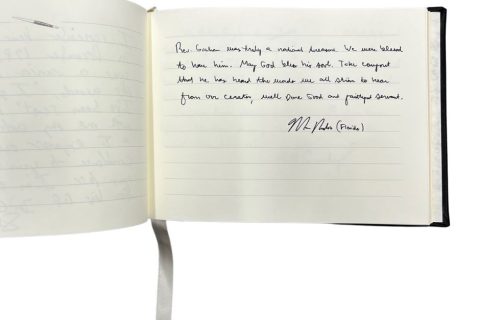 Rev. Graham was truly a national treasure. We were blessed
to have him. May God bless his soul. Take comfort
that he has heard the words we all strive to hear
from our creator, well done Good and faithful servant.
(Florida)